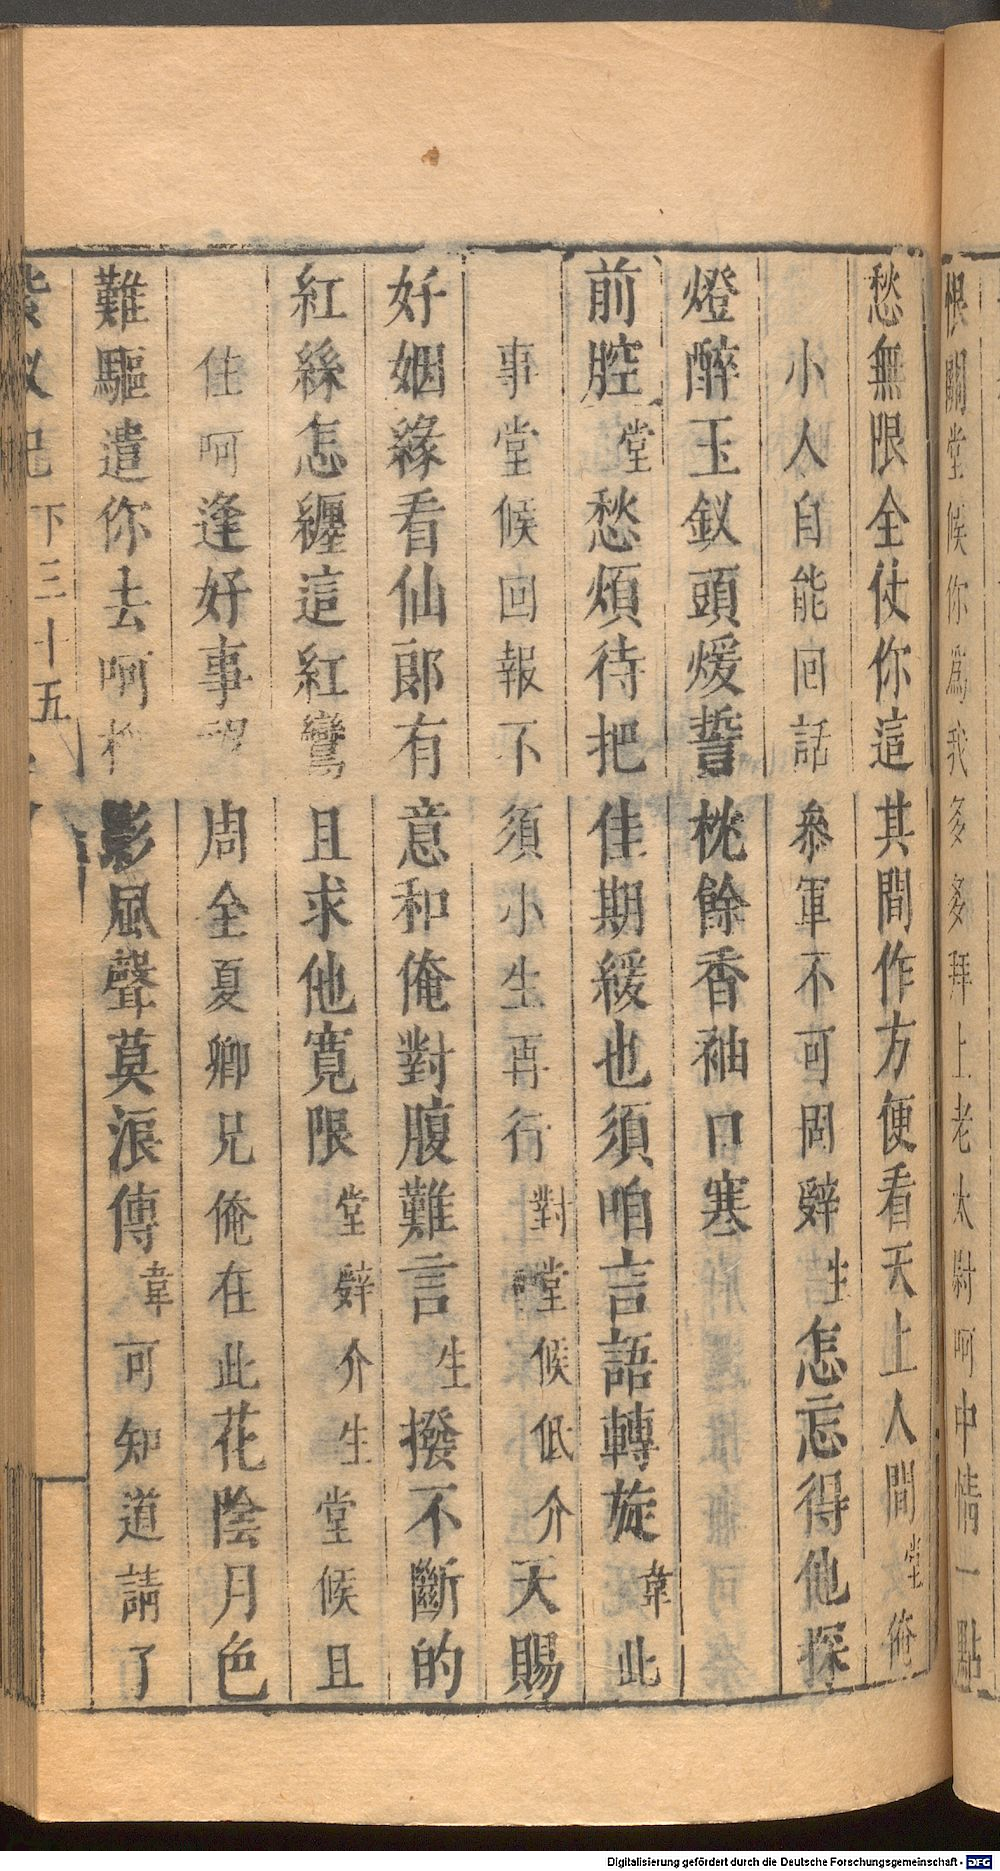 恨關堂候你爲我多多拜上老太尉呵中情一點
愁無限全仗你這其間作方便看天上人間堂俺
小人自能回話叅軍不可固辭生怎忘得他探
燈醉玉釵頭煖誓枕餘香袖口寒
前腔堂愁煩待把佳期緩也須咱言語轉旋韋此
事堂候回報不須小生再行對堂候低介天賜
好姻緣看仙郎有意和俺對腹難言生撥不斷的
紅絲怎纏這紅鸞且求他寬限堂辭介生堂候且
住呵逢好事望周全夏卿兄俺在此花陰月色
難驅遣你去呵影風聲莫浪傳韋可知道請了
紫釵記 下三十五
Digitalisierung gefördert durch die Deutsche Forschungsgemeinschaft - DFG